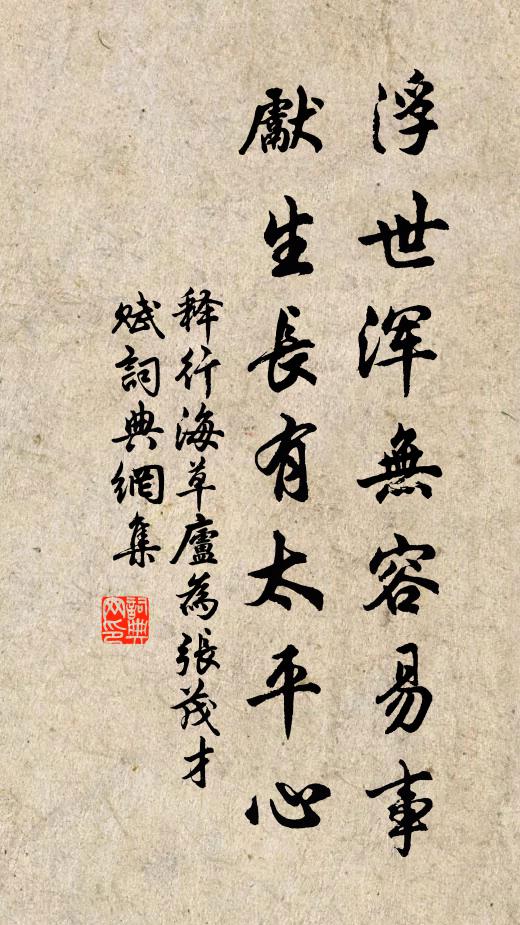 浮世浑無容易事
獻生長有太平心
释行海草廬為張茂才
赋詞典網集
詞典网印